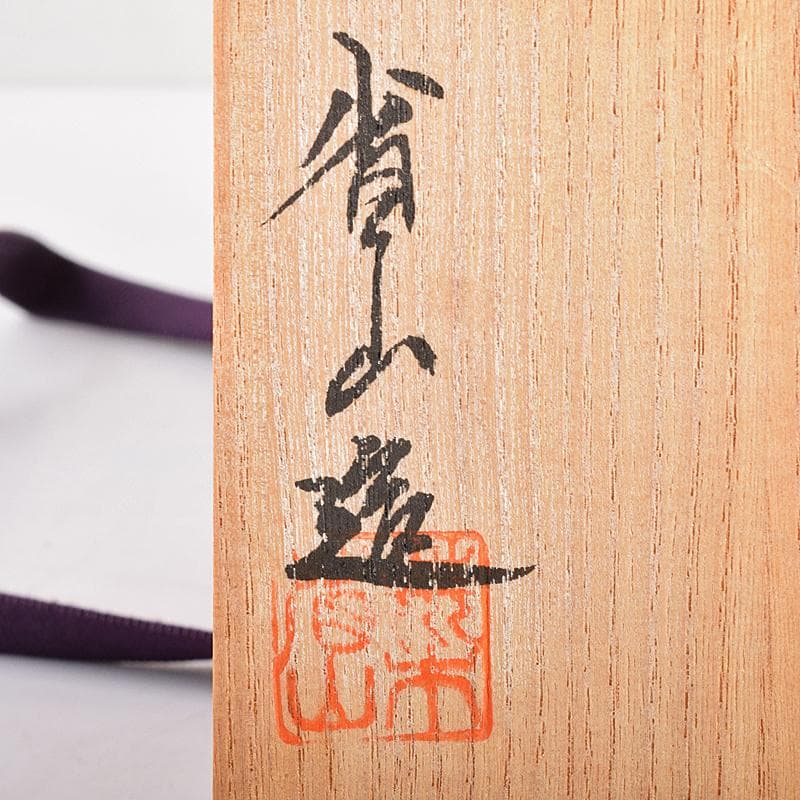 省山造